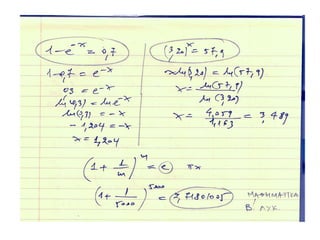 1-e^-x = 0,7
1-0,7 = e^-x
0,3 = e^-x
ln(0,3) = ln e^-x
ln(0,3) = -x
-1,204 = -x
x = 1,204
(3,20)^x = 57,9
x ln(3,20) = ln(57,9)
x = ln(57,9) / ln(3,20)
x = 4,059 / 1,163 = 3,489
(1 + 1/m)^m = e πx
(1 + 1/5000)^5000 = 2,7180/005
ΜΑΘΗΜΑΤΙΚΑ
Β' ΛΥΚ.